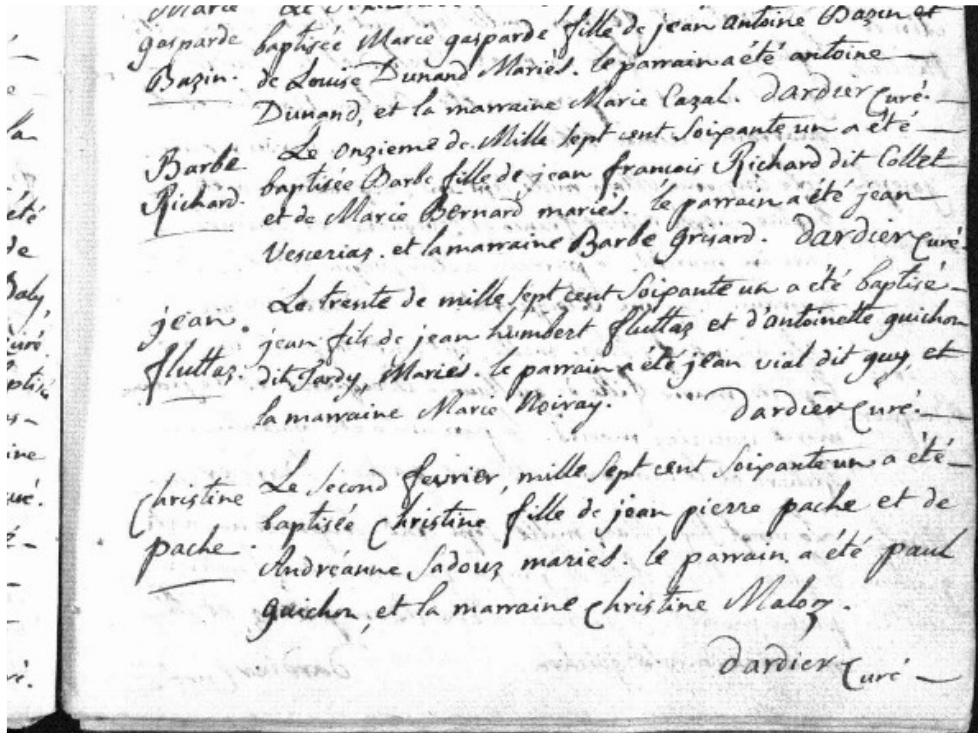 Marie Le
gasparde baptisée Marie gasparde fille de jean antoine Bazin et
Bazin. de Louise Dunand Mariés. le parrain a été antoine
Dunand, et la marraine Marie Cazal. Dardier Curé.
Le onzieme de Mille sept cent soixante un a été
Barbe baptisée Barbe fille de jean françois Richard dit Collet
Richard. et de Marie Bernard mariés. le parrain a été jean
et la marraine Barbe Grisard. Dardier Curé.
Le trente de mille sept cent soixante un a été baptisé
jean jean fils de jean humbert fluttaz et d'antoinette guichon
fluttaz. dit Tardy, Mariés. le parrain a été jean vial dit guy, et
la marraine Marie Noiray. Dardier Curé.
Le second fevrier, mille sept cent soixante un a été
Christine baptisée Christine fille de jean pierre pache et de
pache. Andréanne Sadoux mariés. le parrain a été paul
guichon, et la marraine Christine
Dardier Curé